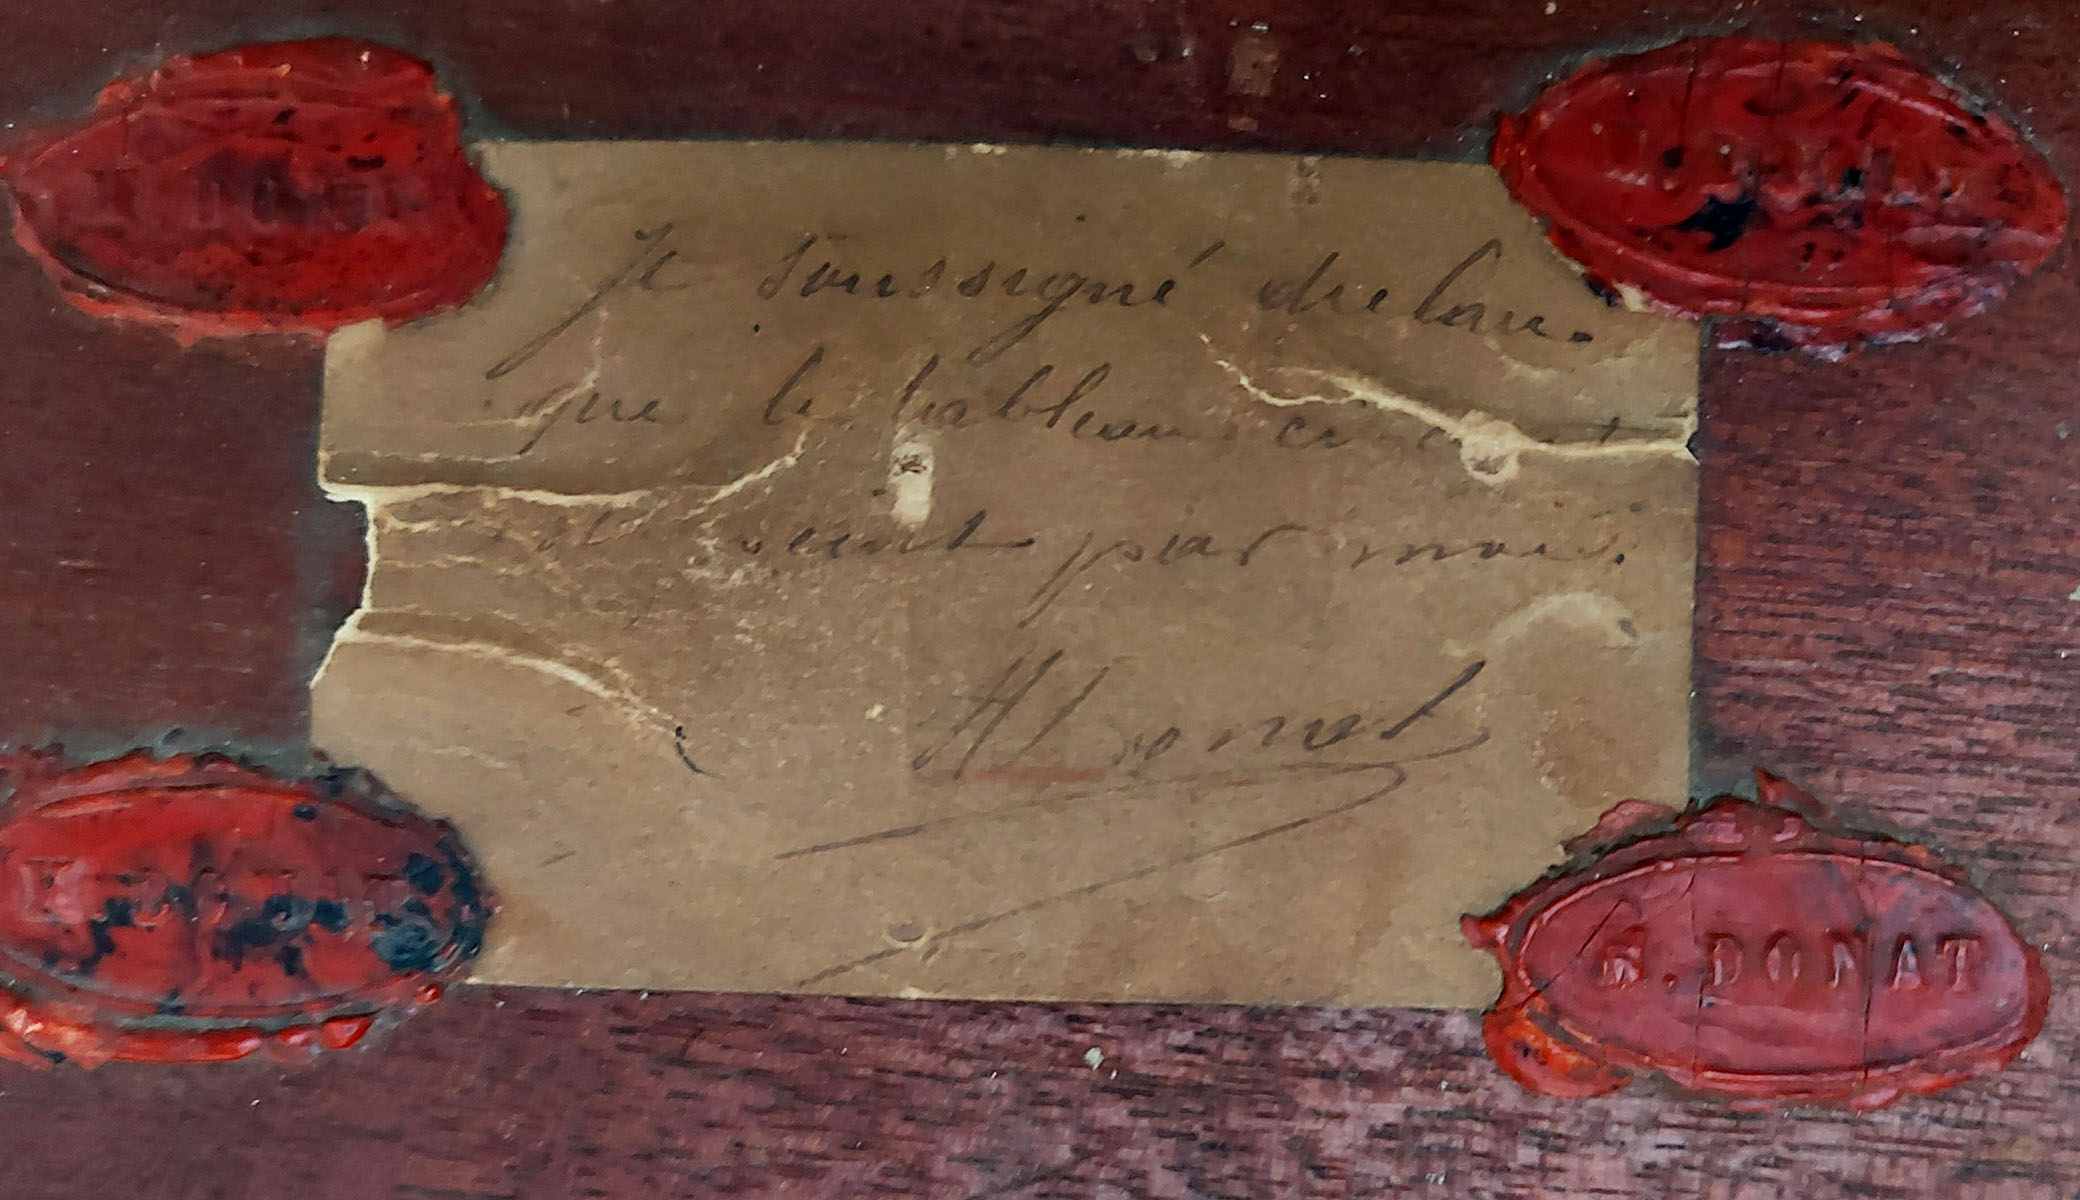 Je soussigné declare
que le tableau ci
peint par moi.
H Donat
H. DONAT